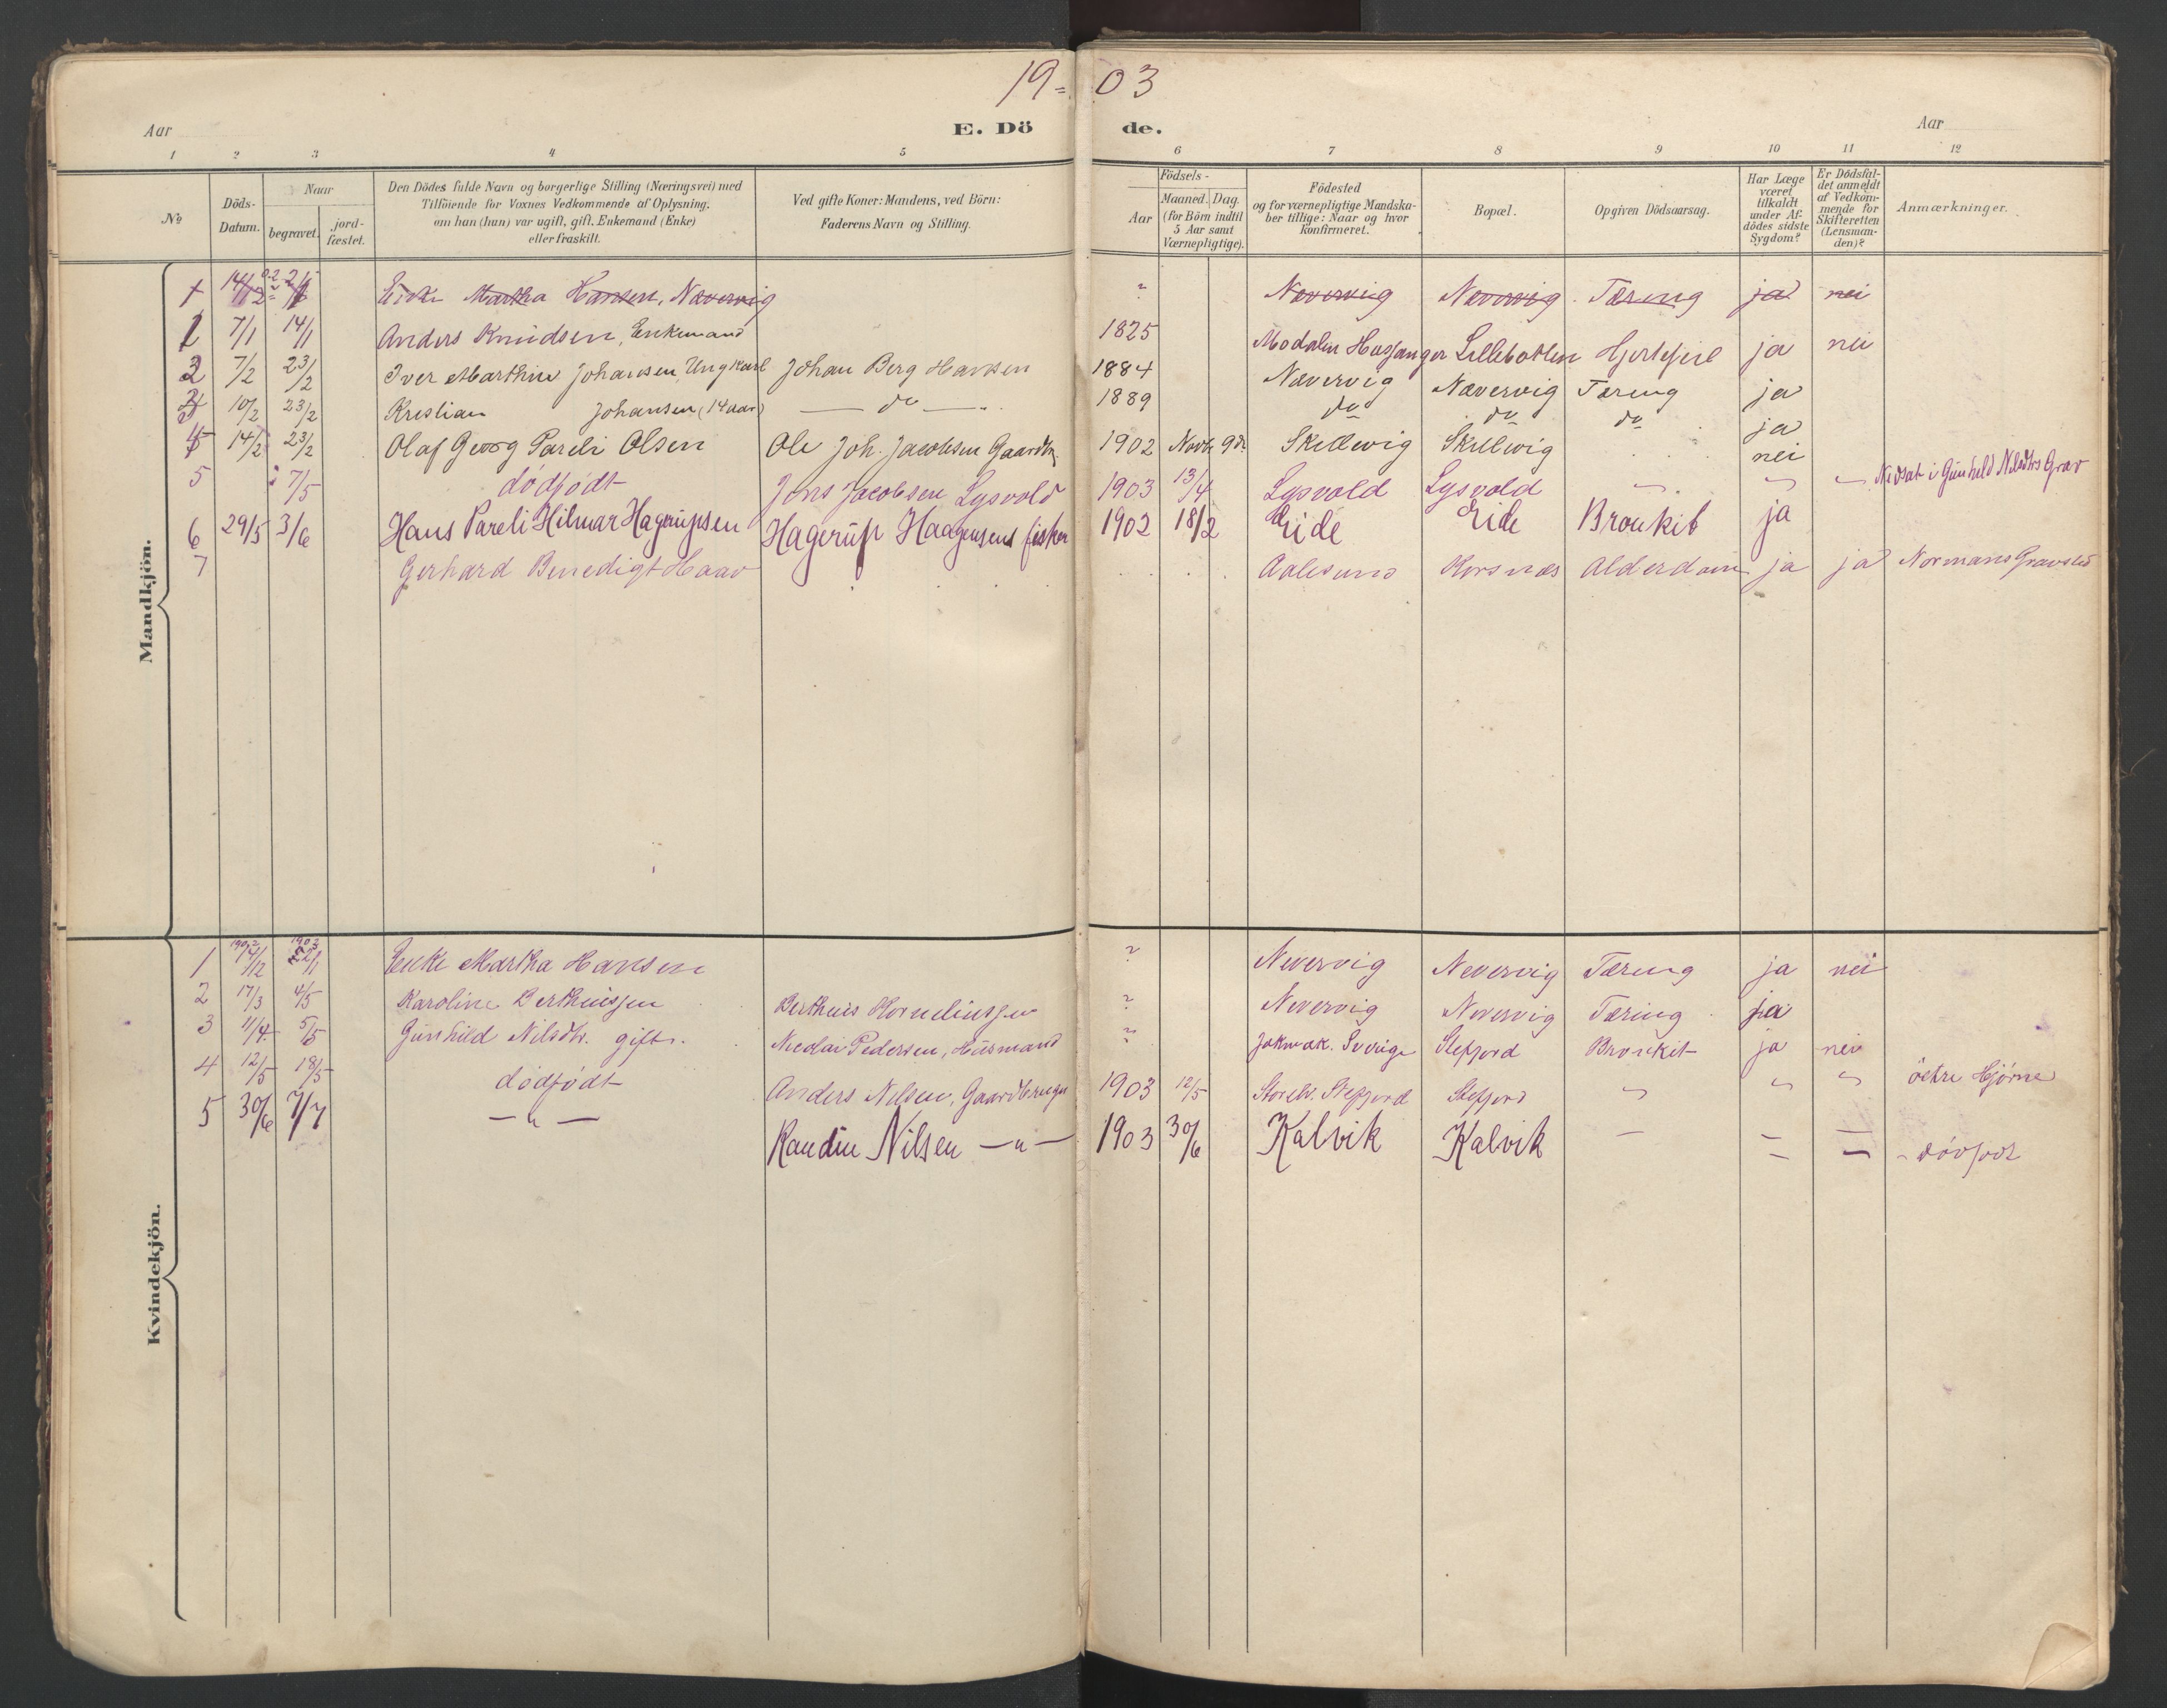 19=03
Aar E. Dö de. Aar
1 2 3 4 5 6 7 8 9 10 11 12
No
Döds-Datum.
Naar begravet. jord-fæstet.
Den Dödes fulde Navn og borgerlige Stilling (Næringsvei) med Tilföiende for Voxnes Vedkommende af Oplysning, om han (hun) var ugift, gift, Enkemand (Enke) eller fraskilt.
Ved gifte Koner: Mandens, ved Börn: Faderens Navn og Stilling.
Födsels-
Aar Maaned. Dag. (for Börn indtil 5 Aar samt Værnepligtige).
Födested og for værnepligtige Mandskaber tillige: Naar og hvor konfirmeret.
Bopæl.
Opgiven Dödsaarsag.
Har Læge været tilkaldt under Afdödes sidste Sygdom?
Er Dödsfaldet anmeldt af Vedkommende for Skifteretten (Lensmanden)?
Anmærkninger.
Mandkjön.
1 14/12 Enke Martha Hansen, Nævervig ? Nævervig Nævervig Tæring ja nei
1 7/1 14/1 Anders Knudsen, Enkemand 1825 Modalen Hosanger Lillebotten Hjertefeil ja nei
2 7/2 23/2 Iver Marthin Johansen, Ungkarl Johan Berg Hansen 1884 Nævervig Nævervig Tæring ja
3 10/2 23/2 Kristian Johansen (14 aar) — do — 1889 do do do ja
4 14/2 23/2 Olaf Georg Pareli Olsen Ole Joh. Jacobsen Gaardbr. 1902 Novbr 9de Skillevig Skillevig nei
5 7/5 dödfödt Jens Jacobsen Lysvold 1903 13/4 Lysvold Lysvold " " " Nedsat i Gunhild Nilsdtrs Grav
6 29/5 3/6 Hans Pareli Hilmar Hagerupsen Hagerup Haagensens fisker 1902 18/2 Eide Eide Bronkit ja
7 Gerhard Benedigt Haav Aalesund Korsnæs Alderdom ja ja Normans Gravsted
Kvindekjön.
1 1902 14/12 1903 2/1 Enke Martha Hansen ? Nevervig Nevervig Tæring ja nei
2 17/3 4/5 Karoline Berthuissen Berthuis Korneliussen ? Nevervig Nevervig Tæring ja
3 11/4 5/5 Gunhild Nilsdtr. gift. Nicolai Pedersen, Husmand ? Jokmok. Sverige Stefjord Bronkit ja nei
4 12/5 18/5 dödfödt Anders Nilsen, Gaardbruger 1903 12/5 Storelv. Stefjord Stefjord " " " östre Hjörne
5 30/6 7/7 — " — Kandin Nilsen — " — 1903 30/6 Kalvik Kalvik — — — dödfödt